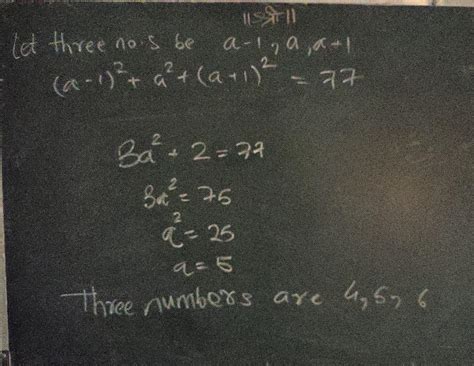 ॥श्री॥
Let three no.s be a-1, a, a+1
(a-1)² + a² + (a+1)² = 77
3a² + 2 = 77
3a² = 75
a² = 25
a = 5
Three numbers are 4, 5, 6